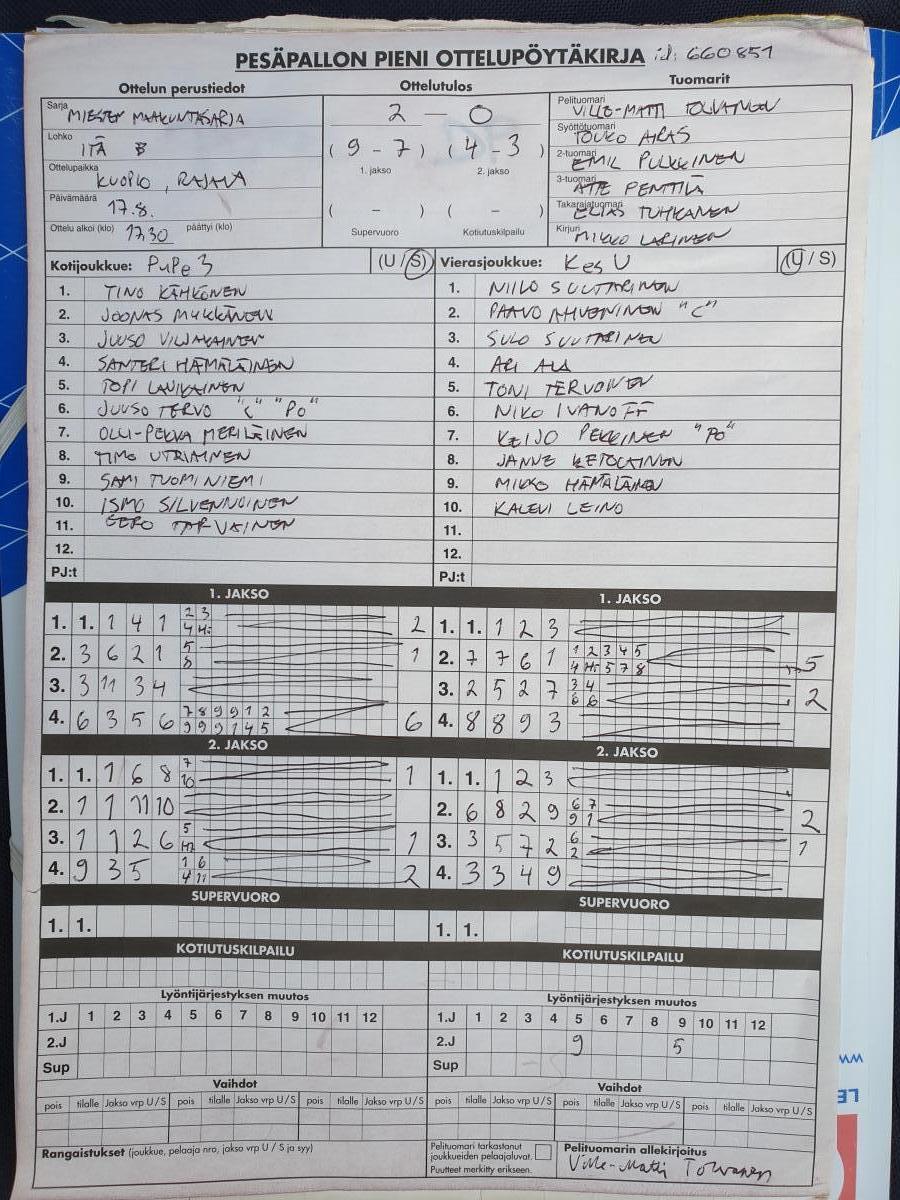 PESÄPALLON PIENI OTTELUPÖYTÄKIRJA id: 660851
Ottelun perustiedot
Ottelutulos
Tuomarit
Sarja MIESTEN MAAKUNTASARJA
Lohko ITÄ B
Ottelupaikka KUOPIO, RAJALA
Päivämäärä 17.8.
Ottelu alkoi (klo) 17.30 päättyi (klo)
2 - 0
( 9 - 7 ) ( 4 - 3 )
1. jakso 2. jakso
( - ) ( - )
Supervuoro Kotiutuskilpailu
Pelituomari VILLE-MATTI TOLVANEN
Syöttötuomari TOUKO AIRAS
2-tuomari EMIL PULKKINEN
3-tuomari ATTE PENTTILÄ
Takarajatuomari ELIAS TUHKANEN
Kirjuri MIKKO LARINEN
Kotijoukkue: PuPe 3 (U / S)
1. TINO KÄHKÖNEN
2. JOONAS MYKKÄNEN
3. JUUSO VILJAKAINEN
4. SANTERI HÄMÄLÄINEN
5. TOPI LAUKAINEN
6. JUUSO TERVO "C" "PO"
7. OLLI-PEKKA MERILÄINEN
8. TIMO UTRIAINEN
9. SAMI TUOMINIEMI
10. ISMO SILVENNOINEN
11. EERO TARVAINEN
12.
PJ:t
Vierasjoukkue: KesU (U / S)
1. NIILO SUUTARINEN
2. PAAVO AHVENINEN "C"
3. SULO SUUTARINEN
4. ARI ALA
5. TONI TERVONEN
6. NIKO IVANOFF
7. KEIJO PEKKINEN "PO"
8. JANNE KETOLAINEN
9. MIKKO HÄMÄLÄINEN
10. KALEVI LEINO
11.
12.
PJ:t
1. JAKSO
1. 1. 1 4 1 2 3 2
4 Hi
2. 3 6 2 1 5 1
8
3. 3 11 3 4
4. 6 3 5 6 7 8 9 9 1 2 6
9 9 9 1 4 5
1. JAKSO
1. 1. 1 2 3
2. 7 7 6 1 1 2 3 4 5 5
4 Hi 5 7 8
3. 2 5 2 7 3 4 2
6 6
4. 8 8 9 3
2. JAKSO
1. 1. 1 6 8 7 1
10
2. 1 1 11 10
3. 1 1 2 6 5 1
4. 9 3 5 1 6 2
4 11
2. JAKSO
1. 1. 1 2 3
2. 6 8 2 9 6 7 2
9 1
3. 3 5 7 2 6 1
2
4. 3 3 4 9
SUPERVUORO
1. 1.
SUPERVUORO
1. 1.
KOTIUTUSKILPAILU
KOTIUTUSKILPAILU
Lyöntijärjestyksen muutos
1.J 1 2 3 4 5 6 7 8 9 10 11 12
2.J
Sup
Lyöntijärjestyksen muutos
1.J 1 2 3 4 5 6 7 8 9 10 11 12
2.J 9 5
Sup
Vaihdot
pois tilalle Jakso vrp U / S pois tilalle Jakso vrp U / S pois tilalle Jakso vrp U / S
Vaihdot
pois tilalle Jakso vrp U / S pois tilalle Jakso vrp U / S pois tilalle Jakso vrp U / S
Rangaistukset (joukkue, pelaaja nro, jakso vrp U / S ja syy)
Pelituomari tarkastanut
joukkueiden pelaajaluvat.
Puutteet merkitty erikseen.
Pelituomarin allekirjoitus
Ville-Matti Tolvanen